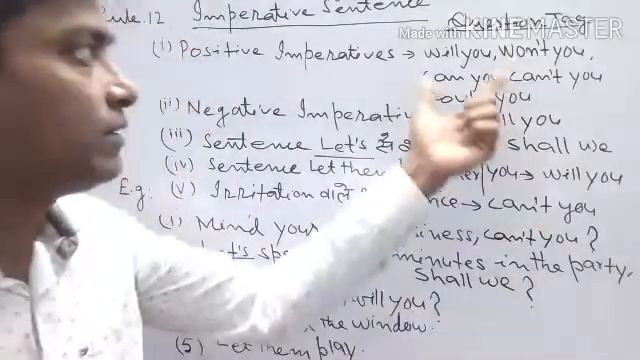 Rule.12 Imperative Sentence Question Tag
Made with KINEMASTER
(i) Positive Imperatives → will you, won't you,
can you can't you
you
(ii) Negative Imperati you
(iii) Sentence Let's से shall we
(iv) Sentence Let you → will you
E.g: (v) Irritation वाले → can't you
(1) Mind your iness, can't you?
Let's sp minutes in the party,
shall we?
will you?
the window.
(5) Let them play.